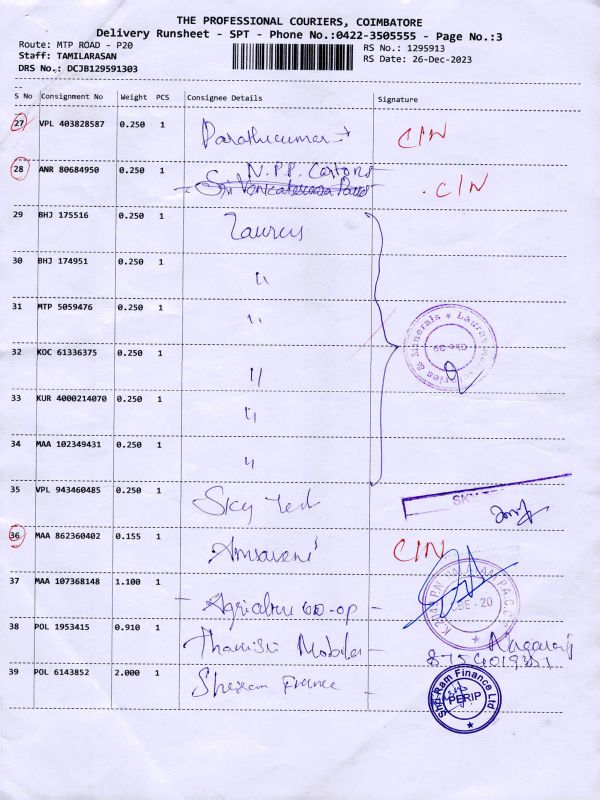 THE PROFESSIONAL COURIERS, COIMBATORE
Delivery Runsheet - SPT - Phone No.:0422-3505555 - Page No.:3
Route: MTP ROAD - P20
RS No.: 1295913
Staff: TAMILARASAN
RS Date: 26-Dec-2023
DRS No.: DCJB129591303
S No Consignment No Weight PCS Consignee Details Signature
27 VPL 403828587 0.250 1 CIN
28 ANR 80684950 0.250 1 N.P.P. Cartons CIN
29 BHJ 175516 0.250 1
30 BHJ 174951 0.250 1 "
31 MTP 5059476 0.250 1 "
32 KOC 61336375 0.250 1 "
33 KUR 4000214070 0.250 1 "
34 MAA 102349431 0.250 1 "
35 VPL 943460485 0.250 1 Sky Text
36 MAA 862360402 0.155 1 CIN
37 MAA 107368148 1.100 1 - Agriculture co-op -
CBE-20
38 POL 1953415 0.910 1 Mobiles
39 POL 6143852 2.000 1
Shri Ram Finance Ltd
PERIP